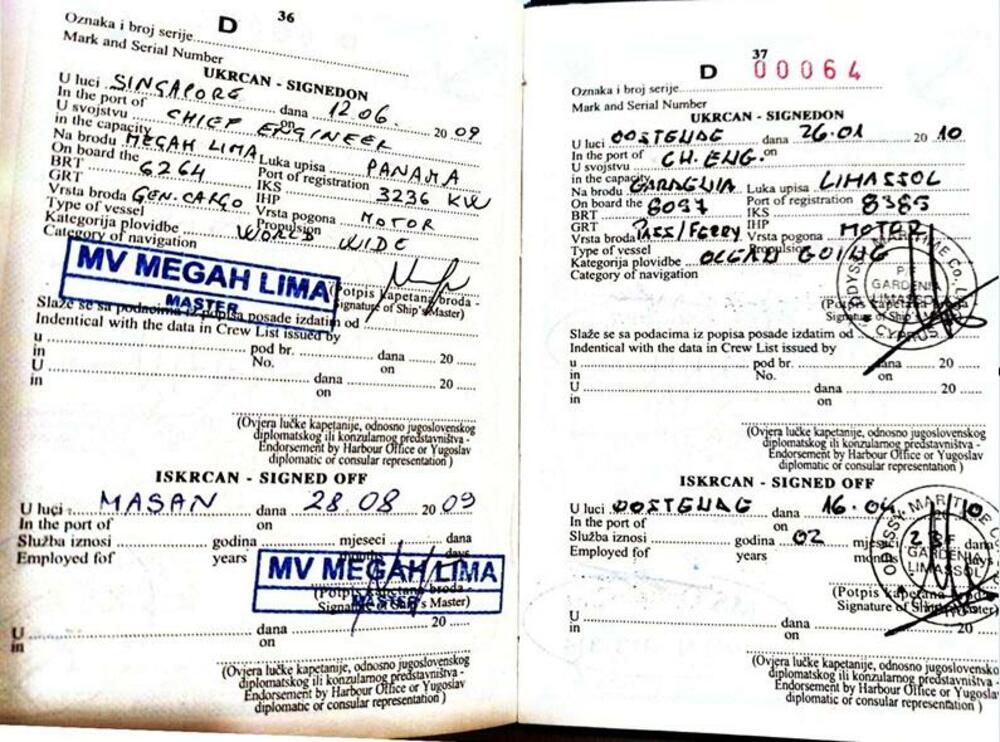 36
D
Oznaka i broj serije
Mark and Serial Number
UKRCAN - SIGNEDON
U luci SINGAPORE dana 12.06. 20 09
In the port of on
U svojstvu CHIEF ENGINEER
in the capacity
Na brodu MEGAH LIMA Luka upisa PANAMA
On board the Port of registration
BRT 6264 IKS 3236 KW
GRT IHP
Vrsta broda GEN. CARGO Vrsta pogona MOTOR
Type of vessel Propulsion
Kategorija plovidbe WORLD WIDE
Category of navigation
MV MEGAH LIMA
MASTER
(Potpis kapetana broda -
Signature of Ship's Master)
Slaže se sa podacima iz popisa posade izdatim od
Indentical with the data in Crew List issued by
u pod br. dana 20
in No. on
U dana 20
in on
(Ovjera lučke kapetanije, odnosno jugoslovenskog
diplomatskog ili konzularnog predstavništva -
Endorsement by Harbour Office or Yugoslav
diplomatic or consular representation)
ISKRCAN - SIGNED OFF
U luci MASAN dana 28.08 20 09
In the port of on
Služba iznosi godina mjeseci dana
Employed fof years months days
MV MEGAH LIMA
MASTER
(Potpis kapetana broda -
Signature of Ship's Master)
U dana 20
in on
(Ovjera lučke kapetanije, odnosno jugoslovenskog
diplomatskog ili konzularnog predstavništva -
Endorsement by Harbour Office or Yugoslav
diplomatic or consular representation)
37
D 00064
Oznaka i broj serije
Mark and Serial Number
UKRCAN - SIGNEDON
U luci OOSTENDE dana 26.01 20 10
In the port of on
U svojstvu CH. ENG.
in the capacity
Na brodu GARDENIA Luka upisa LIMASSOL
On board the Port of registration
BRT 8097 IKS 8385
GRT IHP
Vrsta broda PASS/FERRY Vrsta pogona MOTOR
Type of vessel Propulsion
Kategorija plovidbe OCEAN GOING
Category of navigation
ODYSSY MARITIME Co. L
P/F
GARDENIA
LIMASSOL
CYPRUS
(Potpis kapetana broda
Signature of Ship's Master)
Slaže se sa podacima iz popisa posade izdatim od
Indentical with the data in Crew List issued by
u pod br. dana 20
in No. on
U dana 20
in on
(Ovjera lučke kapetanije, odnosno jugoslovenskog
diplomatskog ili konzularnog predstavništva -
Endorsement by Harbour Office or Yugoslav
diplomatic or consular representation)
ISKRCAN - SIGNED OFF
U luci OOSTENDE dana 16.04 10
In the port of on
Služba iznosi godina 02 mjeseci dana
Employed fof years months days
GARDENIA
LIMASSOL
(Potpis kapetana
Signature of Ship's Master)
U dana 20
in on
(Ovjera lučke kapetanije, odnosno jugoslovensko
diplomatskog ili konzularnog predstavništva -
Endorsement by Harbour Office or Yugosla
diplomatic or consular representation)